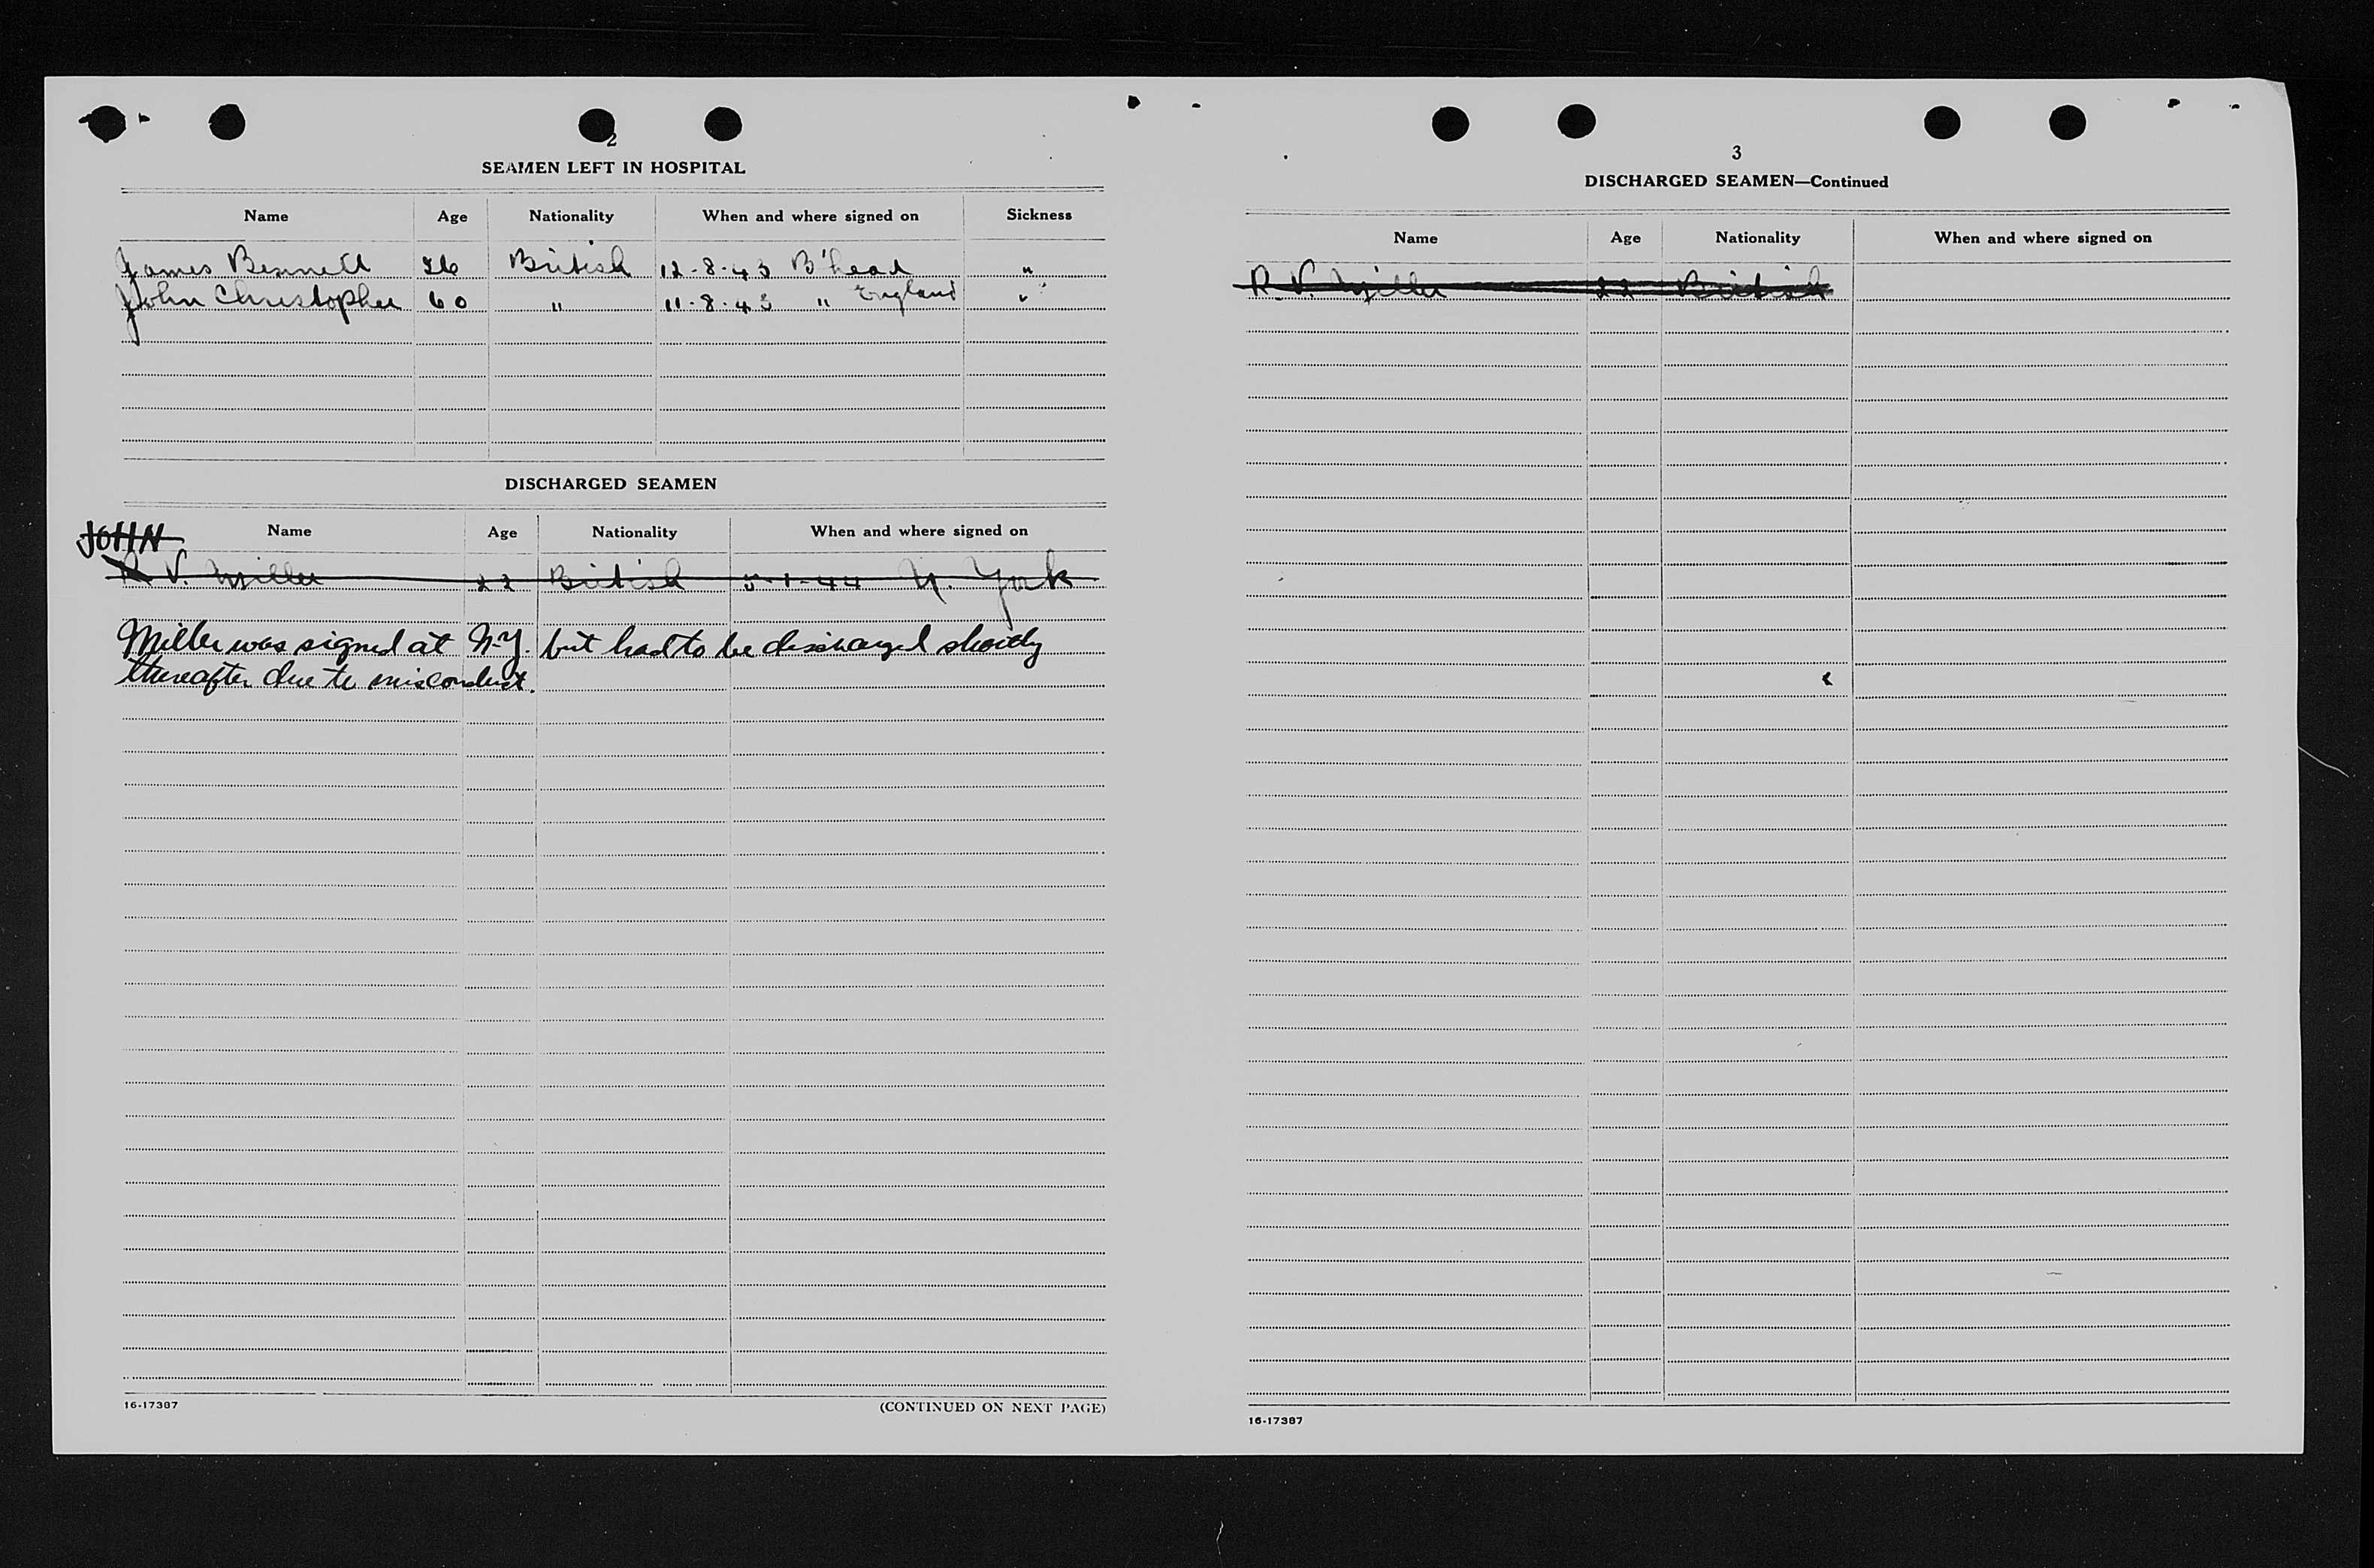 2
SEAMEN LEFT IN HOSPITAL
Name Age Nationality When and where signed on Sickness
James Bennett 26 British 12-8-43 B'head "
John Christopher 60 " 11-8-43 " England "
DISCHARGED SEAMEN
Name Age Nationality When and where signed on
JOHN
R V. Miller 22 British 5-1-44 N. York
Miller was signed at N-Y. but had to be discharged shortly
thereafter due to misconduct.
16-17387 (CONTINUED ON NEXT PAGE)
3
DISCHARGED SEAMEN—Continued
Name Age Nationality When and where signed on
R. V. Miller 22 British
16-17387